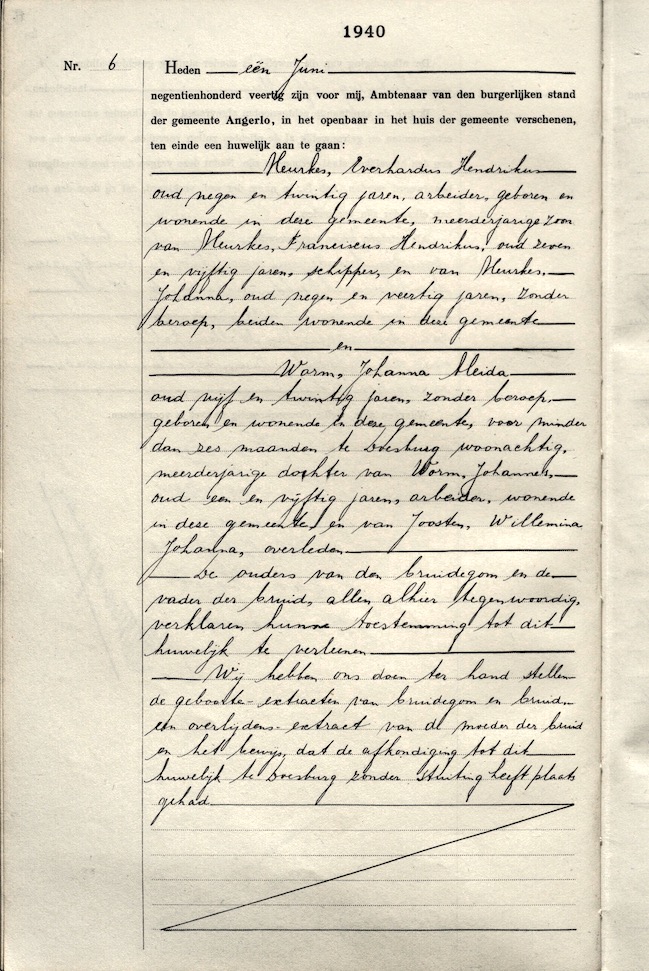 1940
Nr. 6 Heden een Juni
negentienhonderd veertig zijn voor mij, Ambtenaar van den burgerlijken stand
der gemeente Angerlo, in het openbaar in het huis der gemeente verschenen,
ten einde een huwelijk aan te gaan:
Heurkes, Everhardus Hendrikus
oud negen en twintig jaren, arbeider, geboren en
wonende in deze gemeente, meerderjarige zoon
van Heurkes, Franciscus Hendrikus, oud zeven
en vijftig jaren, schipper, en van Heurkes,
Johanna, oud negen en veertig jaren, zonder
beroep, beiden wonende in deze gemeente
en
Worm, Johanna Aleida
oud vijf en twintig jaren, zonder beroep,
geboren en wonende in deze gemeente, voor minder
dan zes maanden te Doesburg woonachtig,
meerderjarige dochter van Worm, Johannes,
oud een en vijftig jaren, arbeider, wonende
in deze gemeente, en van Joosten, Willemina
Johanna, overleden
De ouders van den bruidegom en de
vader der bruid, allen alhier tegenwoordig,
verklaren hunne toestemming tot dit
huwelijk te verleenen
Wij hebben ons doen ter hand stellen
de geboorte-extracten van bruidegom en bruid
een overlijdens-extract van de moeder der bruid
en het bewijs, dat de afkondiging tot dit
huwelijk te Doesburg zonder stuiting heeft plaats
gehad